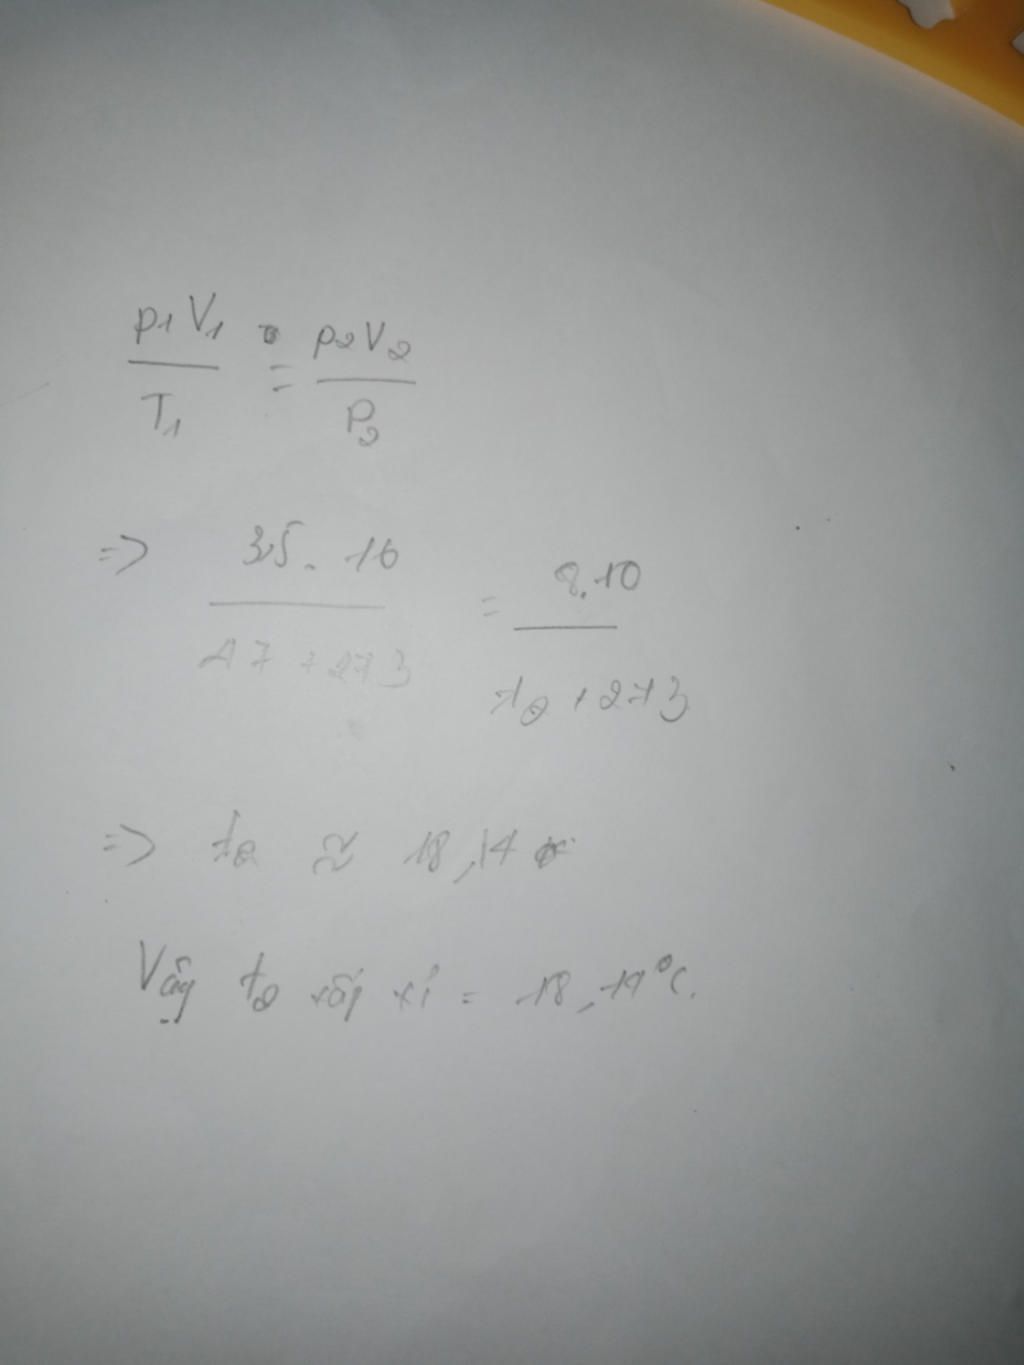 p1 V1 = p2 V2
T1 P2
=> 3,5. 16 = 8.10
47 + 273 t2 + 273
=> t2 ≈ 18,14
Vậy t2 xấp xỉ = 18,14°C.